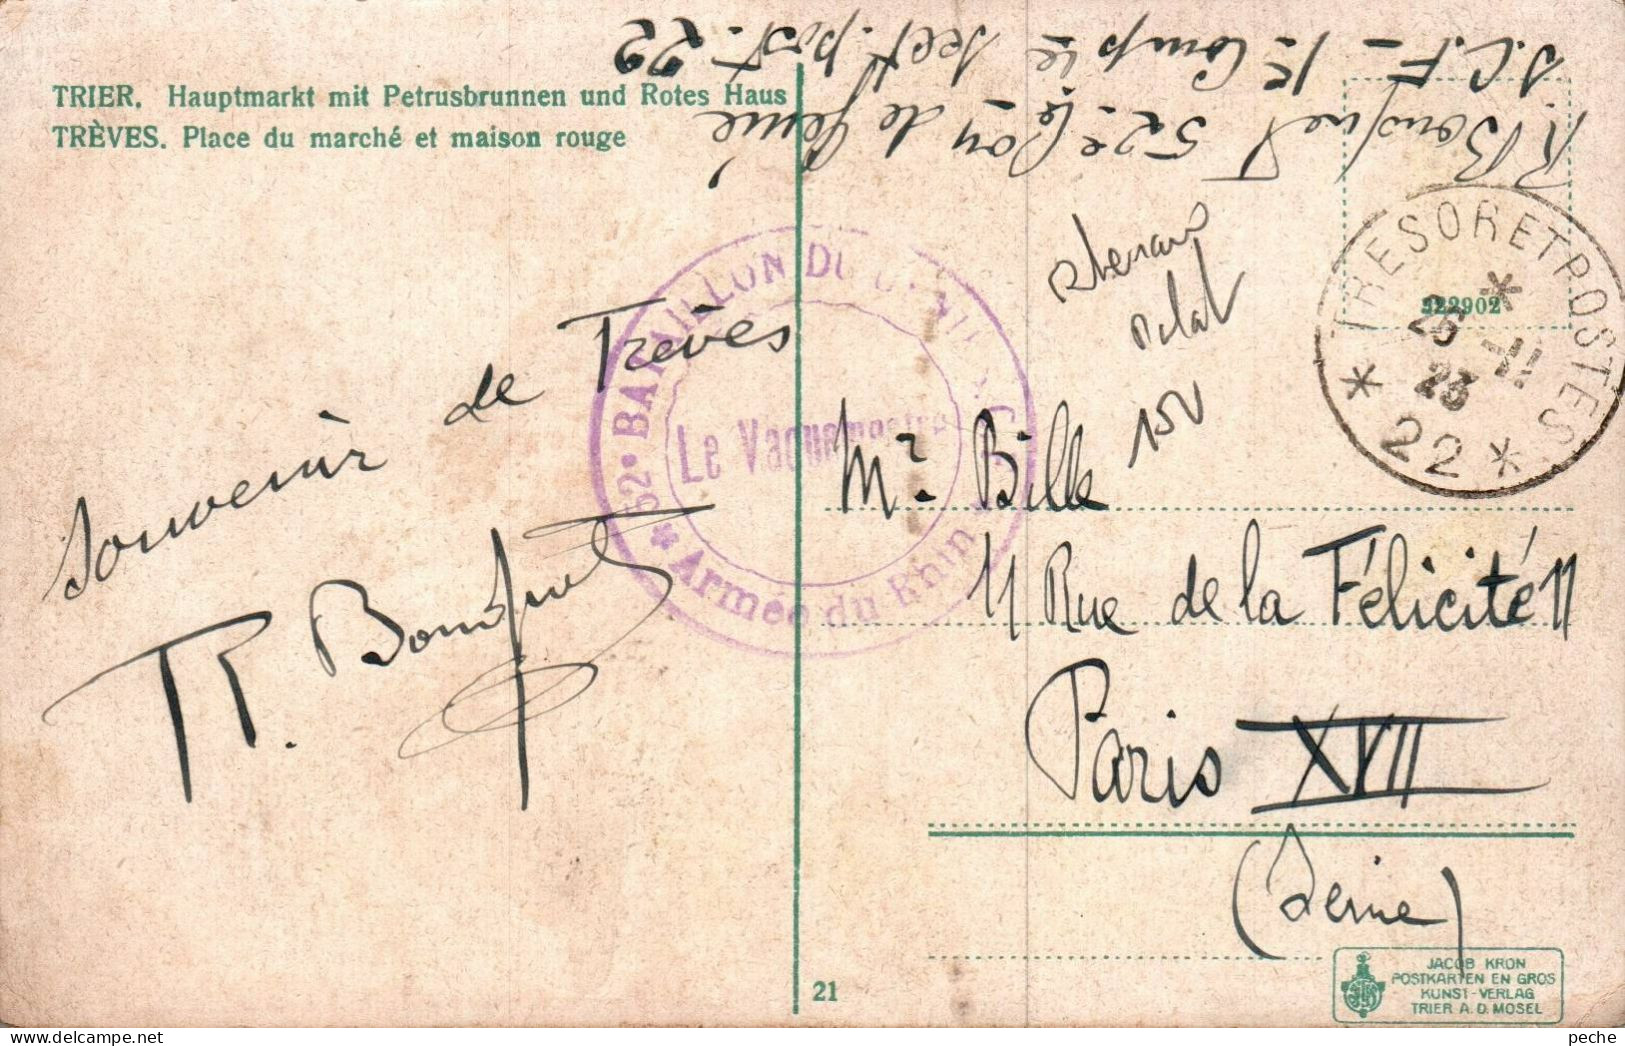 TRIER. Hauptmarkt mit Petrusbrunnen und Rotes Haus
TRÈVES. Place du marché et maison rouge
Souvenir de Trèves
R. Bousquet
R. Bousquet 52e de Génie
S.C.F. - 1e Comp ie Sect. post. 22
52e BATAILLON DU
Le Vaguemestre
* Armée du Rhin
TRESOR ET POSTES
25 -11
23
* 22 *
922902
150
Mr. Bille
11 Rue de la Félicité 11
Paris XVII
(Seine)
21
JACOB KRON
POSTKARTEN EN GROS
KUNST-VERLAG
TRIER A.D. MOSEL
peche